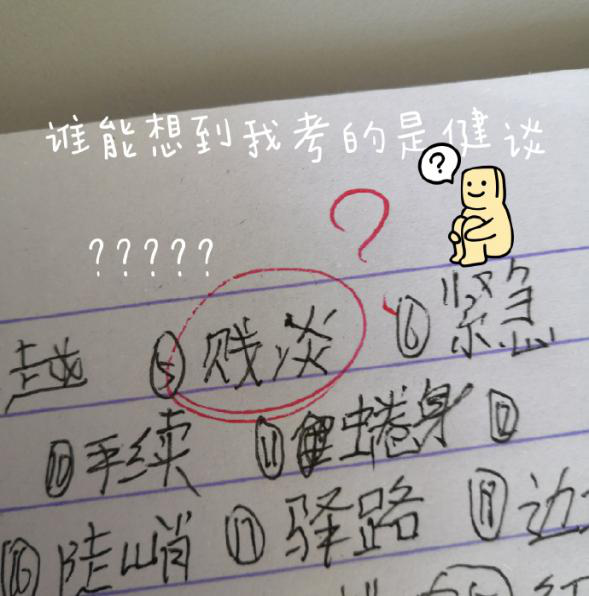 谁能想到我考的是健谈
?
?????
?
越 ⑤ 贱淡 ⑥ 紧急
⑩ 手续 ⑪ 蜷身 ⑫
⑯ 陡峭 ⑰ 驿路 ⑱ 边